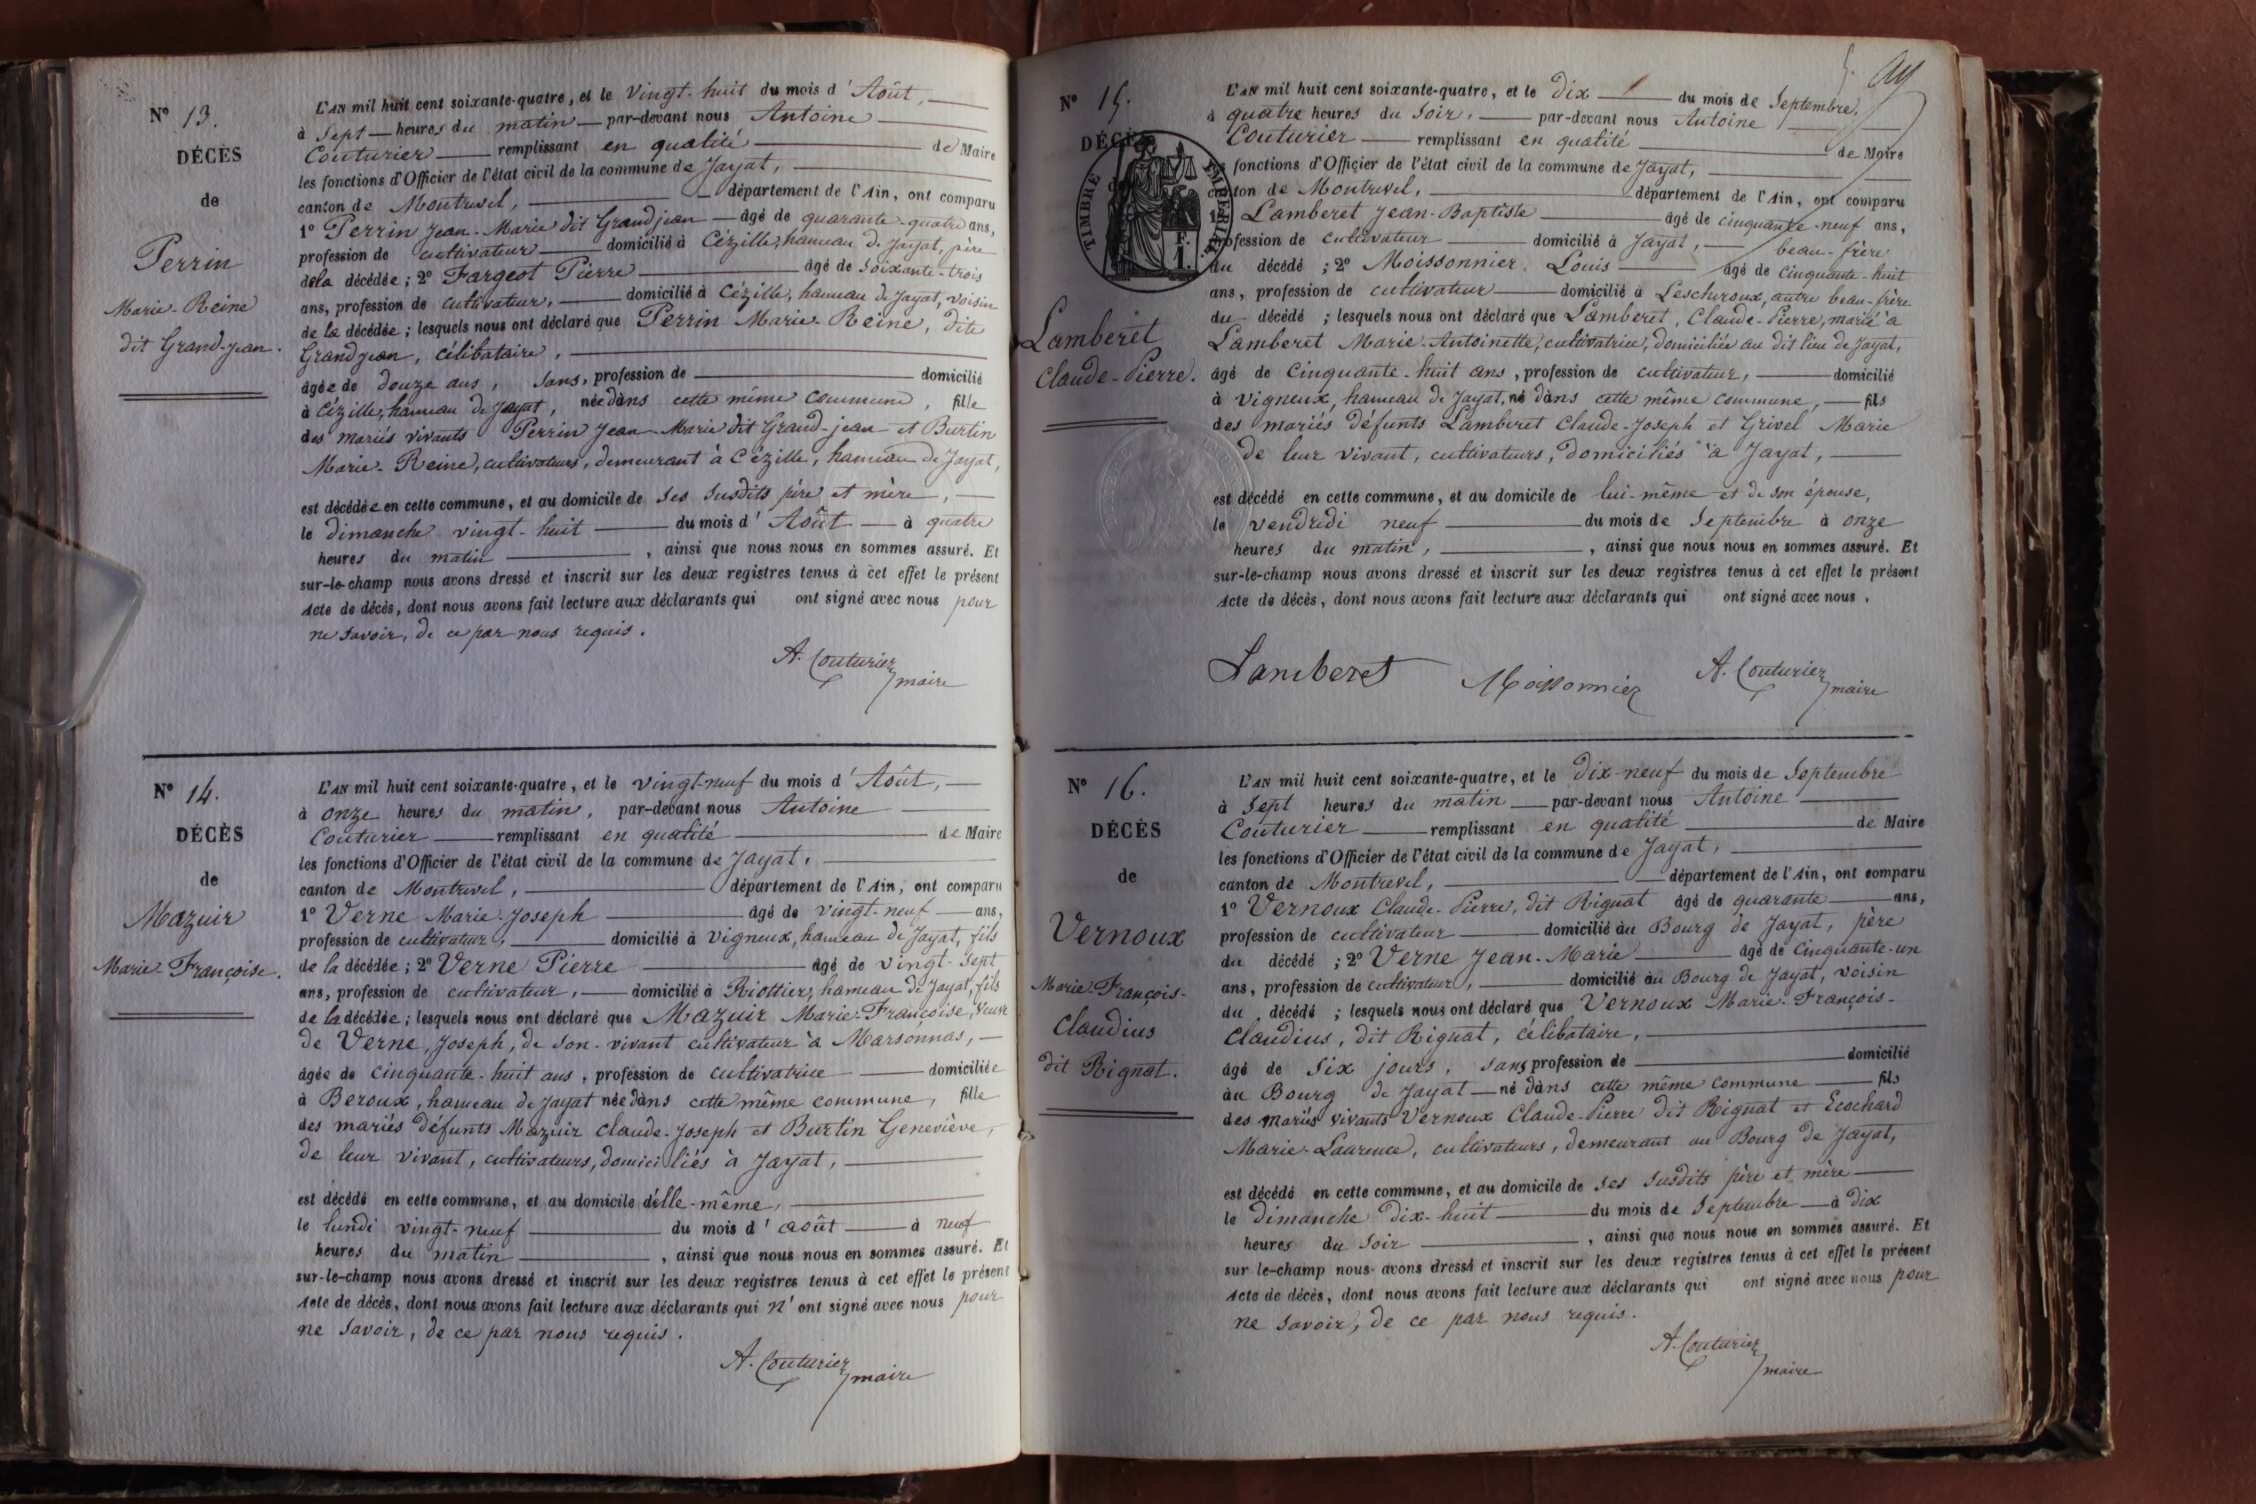 N° 13.
DÉCÈS
de
Perrin
Marie-Reine
dit Grand-jean.
L'AN mil huit cent soixante-quatre, et le vingt-huit du mois d'Août,
à sept heures du matin par-devant nous Antoine
Couturier remplissant en qualité de Maire
les fonctions d'Officier de l'état civil de la commune de Jayat,
canton de Montrevel, département de l'Ain, ont comparu
1° Perrin Jean-Marie dit Grandjean âgé de quarante-quatre ans,
profession de cultivateur domicilié à Cézille, hameau de Jayat, père
de la décédée; 2° Fargeot Pierre âgé de soixante-trois
ans, profession de cultivateur, domicilié à Cézille, hameau de Jayat, voisin
de la décédée; lesquels nous ont déclaré que Perrin Marie-Reine, dite
Grandjean, célibataire,
âgée de douze ans, sans, profession de domicilié
à Cézille, hameau de Jayat, née dans cette même commune, fille
des mariés vivants Perrin Jean-Marie dit Grand-jean et Burtin
Marie-Reine, cultivateurs, demeurant à Cézille, hameau de Jayat,
est décédée en cette commune, et au domicile de ses susdits père et mère,
le dimanche vingt-huit du mois d'Août à quatre
heures du matin, ainsi que nous nous en sommes assuré. Et
sur-le-champ nous avons dressé et inscrit sur les deux registres tenus à cet effet le présent
Acte de décès, dont nous avons fait lecture aux déclarants qui ont signé avec nous pour
ne savoir, de ce par nous requis.
A. Couturier
maire
N° 14.
DÉCÈS
de
Mazuir
Marie-Françoise.
L'AN mil huit cent soixante-quatre, et le vingt-neuf du mois d'Août,
à onze heures du matin, par-devant nous Antoine
Couturier remplissant en qualité de Maire
les fonctions d'Officier de l'état civil de la commune de Jayat,
canton de Montrevel, département de l'Ain, ont comparu
1° Verne Marie-Joseph âgé de vingt-neuf ans,
profession de cultivateur, domicilié à Vigneux, hameau de Jayat, fils
de la décédée; 2° Verne Pierre âgé de vingt-sept
ans, profession de cultivateur, domicilié à Riottier, hameau de Jayat, fils
de la décédée; lesquels nous ont déclaré que Mazuir Marie-Françoise, veuve
de Verne, Joseph, de son vivant cultivateur à Marsonnas,
âgée de cinquante-huit ans, profession de cultivatrice domiciliée
à Beroux, hameau de Jayat née dans cette même commune, fille
des mariés défunts Mazuir Claude-Joseph et Burtin Geneviève,
de leur vivant, cultivateurs, domiciliés à Jayat,
est décédé en cette commune, et au domicile d'elle-même,
le lundi vingt-neuf du mois d'août à neuf
heures du matin, ainsi que nous nous en sommes assuré. Et
sur-le-champ nous avons dressé et inscrit sur les deux registres tenus à cet effet le présent
Acte de décès, dont nous avons fait lecture aux déclarants qui n'ont signé avec nous pour
ne savoir, de ce par nous requis.
A. Couturier
maire
N° 15.
DÉCÈS
TIMBRE IMPÉRIAL
F.
1.
Lamberet
Claude-Pierre.
L'AN mil huit cent soixante-quatre, et le dix du mois de Septembre,
à quatre heures du soir, par-devant nous Antoine
Couturier remplissant en qualité de Maire
fonctions d'Officier de l'état civil de la commune de Jayat,
canton de Montrevel, département de l'Ain, ont comparu
1° Lamberet Jean-Baptiste âgé de cinquante-neuf ans,
profession de cultivateur domicilié à Jayat, beau-frère
du décédé; 2° Moissonnier Louis âgé de cinquante-huit
ans, profession de cultivateur domicilié à Lescheroux, autre beau-frère
du décédé; lesquels nous ont déclaré que Lamberet, Claude-Pierre, marié à
Lamberet Marie-Antoinette, cultivatrice, domiciliée au dit lieu de Jayat,
âgé de cinquante-huit ans, profession de cultivateur, domicilié
à Vigneux, hameau de Jayat, né dans cette même commune, fils
des mariés défunts Lamberet Claude-Joseph et Grivel Marie
de leur vivant, cultivateurs, domiciliés à Jayat,
est décédé en cette commune, et au domicile de lui-même et de son épouse,
le vendredi neuf du mois de Septembre à onze
heures du matin, ainsi que nous nous en sommes assuré. Et
sur-le-champ nous avons dressé et inscrit sur les deux registres tenus à cet effet le présent
Acte de décès, dont nous avons fait lecture aux déclarants qui ont signé avec nous.
Lamberet Moissonnier A. Couturier
maire
N° 16.
DÉCÈS
de
Vernoux
Marie-François-
Claudius
dit Rignat.
L'AN mil huit cent soixante-quatre, et le dix-neuf du mois de Septembre
à sept heures du matin par-devant nous Antoine
Couturier remplissant en qualité de Maire
les fonctions d'Officier de l'état civil de la commune de Jayat,
canton de Montrevel, département de l'Ain, ont comparu
1° Vernoux Claude-Pierre, dit Rignat âgé de quarante ans,
profession de cultivateur domicilié au Bourg de Jayat, père
du décédé; 2° Verne Jean-Marie âgé de cinquante-un
ans, profession de cultivateur, domicilié au Bourg de Jayat, voisin
du décédé; lesquels nous ont déclaré que Vernoux Marie-François-
Claudius, dit Rignat, célibataire,
âgé de six jours, sans profession de domicilié
au Bourg de Jayat né dans cette même commune fils
des mariés vivants Vernoux Claude-Pierre dit Rignat et Ecochard
Marie-Laurence, cultivateurs, demeurant au Bourg de Jayat,
est décédé en cette commune, et au domicile de ses susdits père et mère
le dimanche dix-huit du mois de Septembre à dix
heures du soir, ainsi que nous nous en sommes assuré. Et
sur le-champ nous avons dressé et inscrit sur les deux registres tenus à cet effet le présent
Acte de décès, dont nous avons fait lecture aux déclarants qui ont signé avec nous pour
ne savoir, de ce par nous requis.
A. Couturier
maire